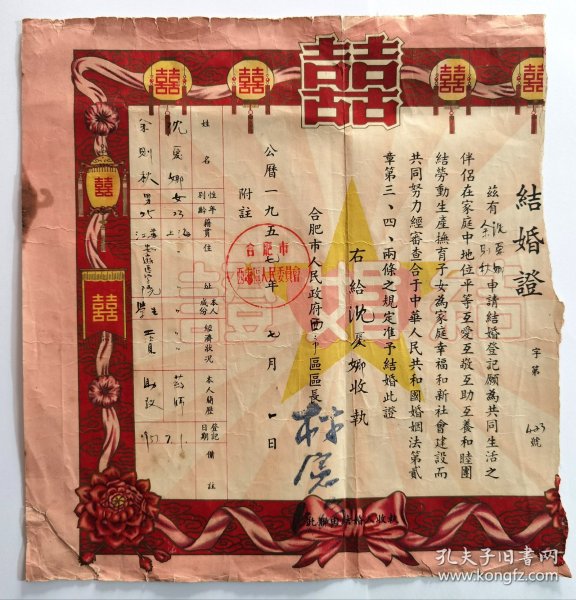 囍
結婚證
字第 423 號
茲有沈夏娜 余則秋申請結婚登記願為共同生活之
伴侶在家庭中地位平等至愛至敬至助至養和睦團
結勞動生產撫育子女為家庭幸福和新社會建設而
共同努力經審查合于中華人民共和國婚姻法第貳
章第三、四、兩條之規定准予結婚此證
右給沈夏娜收執
合肥市人民政府西市區區長
公曆一九五七年七月一日
附註
合肥市
西市區人民委員會
姓名 性別 年齡 籍貫 住址 本人成份 經濟狀況 本人簡歷 登記日期 備註
沈夏娜 女 23 上海
余則秋 男 25 江蘇 學生 57.7.1.
結婚證
收執
孔夫子旧书网
www.kongfz.com